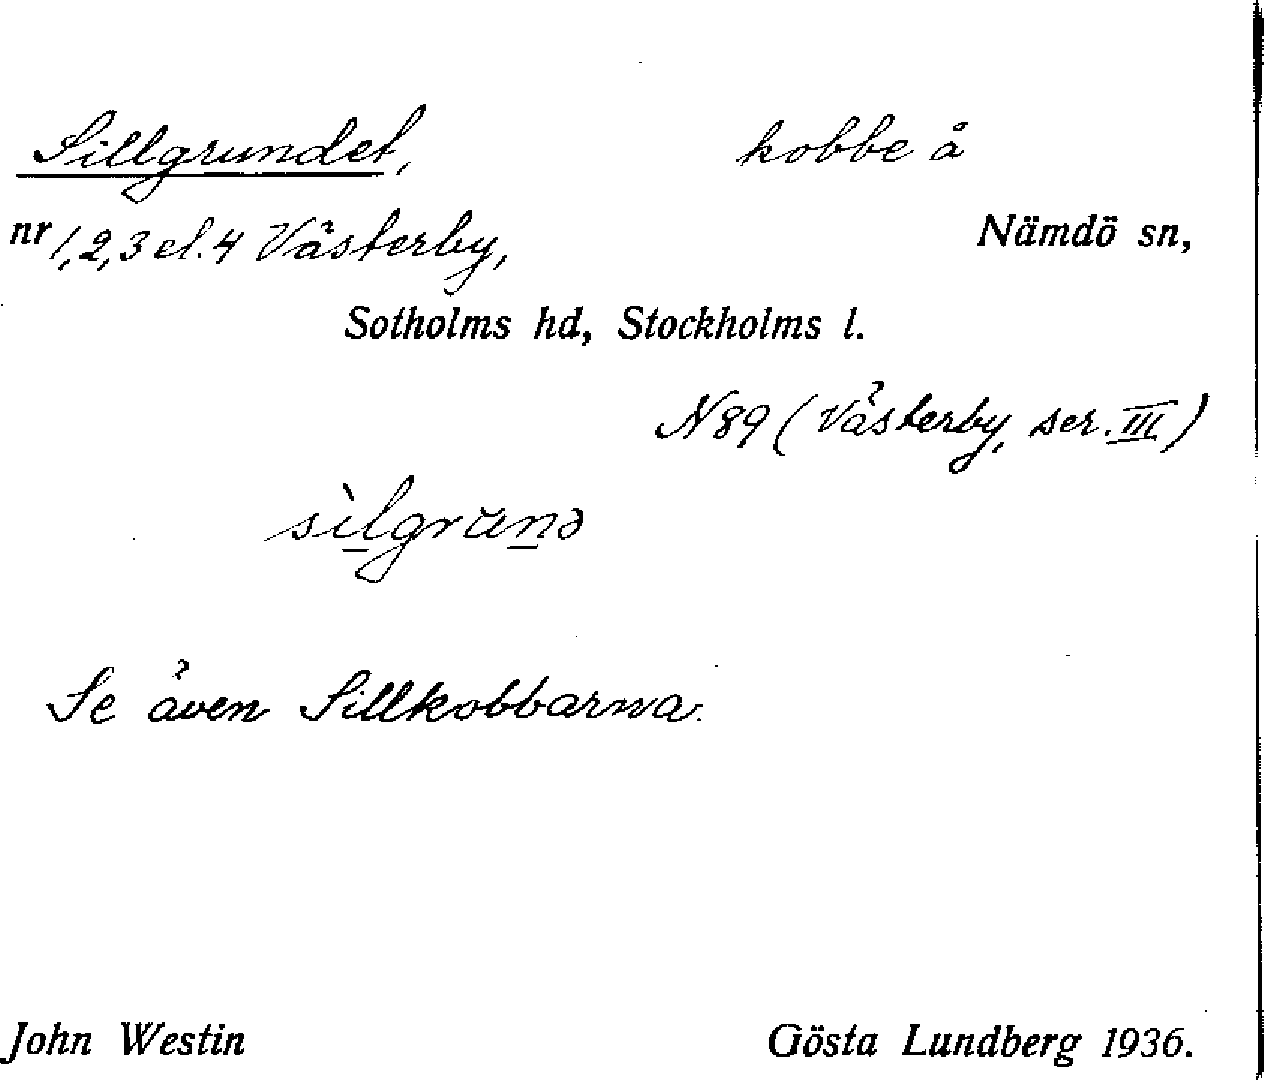 Sillgrundet, kobbe å
nr 1, 2, 3 el. 4 Västerby, Nämdö sn,
Sotholms hd, Stockholms l.
N 89 (Västerby, ser. III)
sìlgrŭnə
Se även Sillkobbarna.
John Westin Gösta Lundberg 1936.